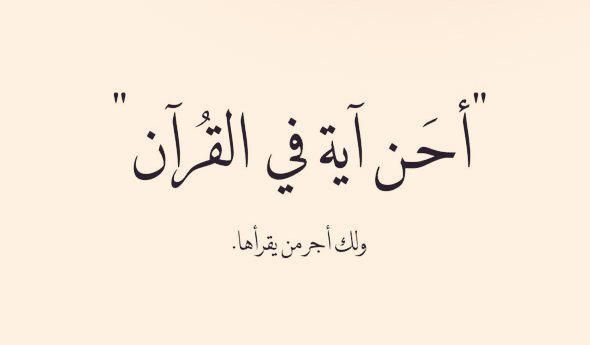 "أحَن آية في القُرآن"
ولك أجر من يقرأها.